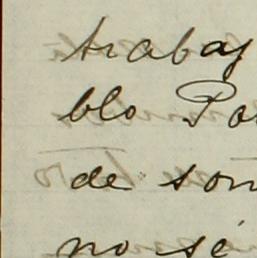 trabaj
blo Po
de son
no sé